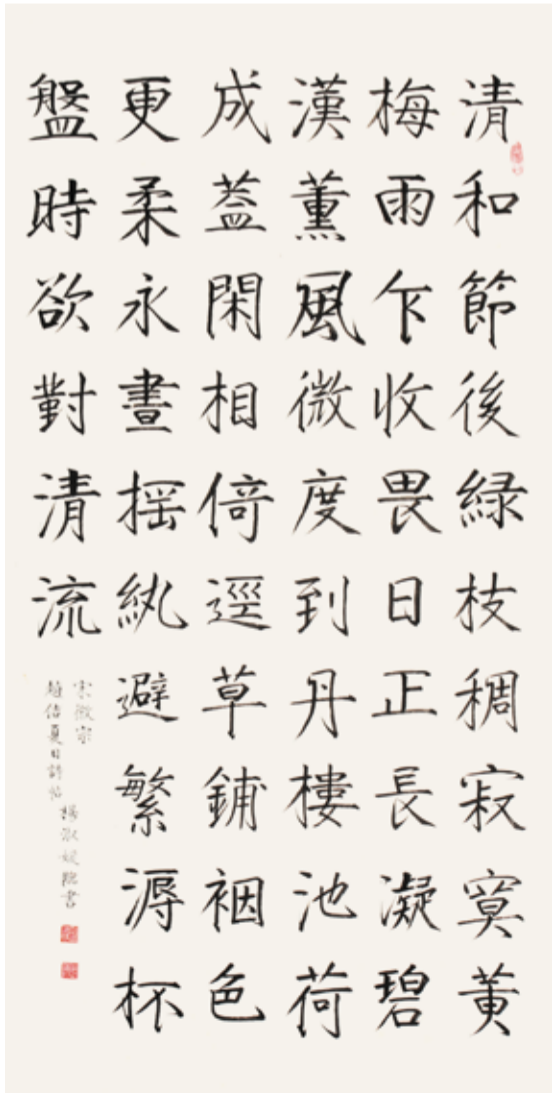 清和節後綠枝稠寂寞黃
梅雨乍收畏日正長凝碧
漢薰風微度到丹樓池荷
成蓋閑相倚逕草鋪裀色
更柔永晝搖紈避繁溽杯
盤時欲對清流
宋徽宗
趙佶夏日詩帖 楊淑媛臨書